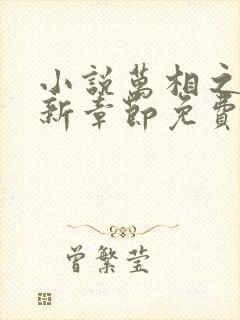 小說萬相之
新章節免費
曾繁莹